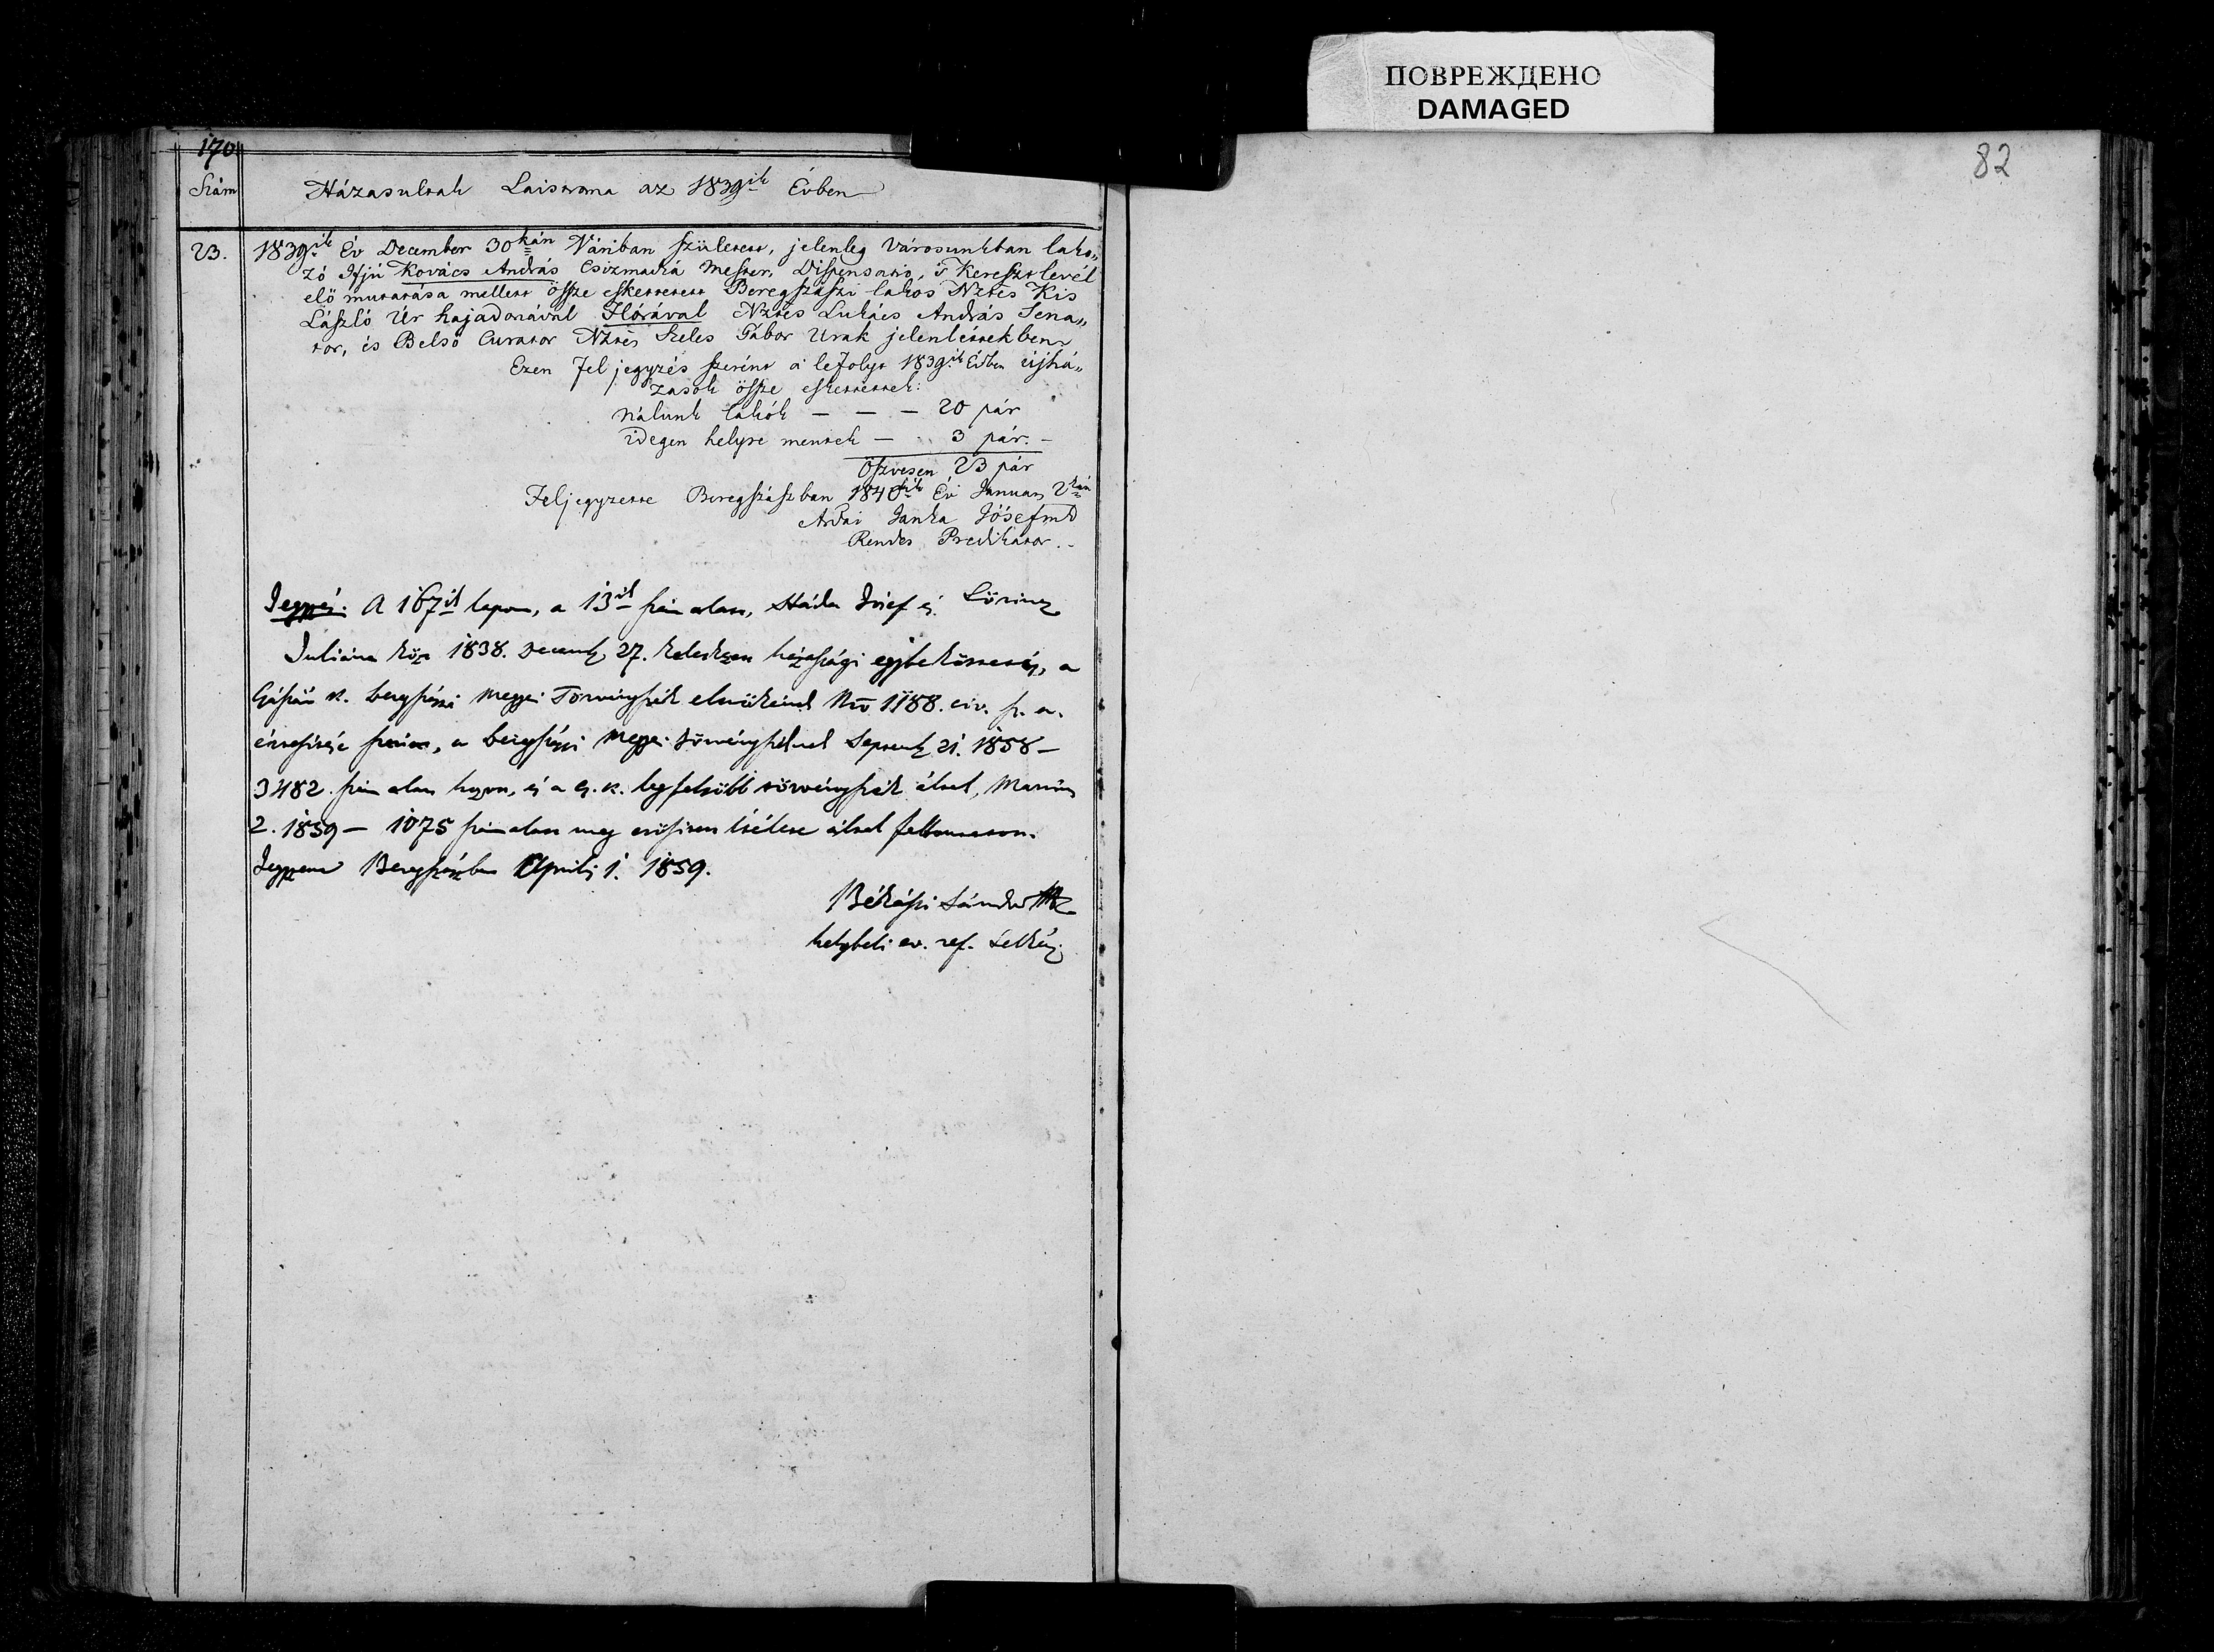 ПОВРЕЖДЕНО
DAMAGED
170
Szám
Házasultak Laistroma az 1839ik Évben
23. 1839ik Év December 30kán Váriban született, jelenleg Városunkban lako„
zó Ifjú Kovács András Csizmadia Mester, Dispensatio, 's Keresztlevél
elő mutatása mellett össze eskettetett Beregszászi lakos Nztes Kis
László Úr hajadonával Flórával Nztes Lukács András Sena„
tor, és Belső Curator Nztes Szeles Gábor Urak jelenlétekben.
Ezen Feljegyzés szerént a' lefolyt 1839ik Évben újhá„
zasok össze eskettettek:
Nálunk lakók — — — 20 pár
idegen helyre mentek — 3 pár. —
Öszvesen 23 pár
Feljegyzette Beregszászban 1840ik Év Januar 2kán
Ardai Janka Jósef mk
Rendes Predikator. -
Jegyzés. A 167ik lapon, a 13ik szám alatt, József és Lőrincz
Juliána közt 1838. Decemb 27. keletkezett házassági egybeköttetés, a
megyei Törvényszék elnökének Nro 1188. eiv. sz. a.
értesítése szerint, a beregszászi megyei törvényszéknél Septemb 21. 1858 —
3482. szám alatt hozott, és a cs. k. legfelsőbb törvényszék által, Martius
2. 1859 — 1075 szám alatt meg erősített ítélete által felbontatott.
Jegyzette Beregszászban Aprilis 1. 1859.
Békássi Sándor mk
helybeli ev. ref. Lelkész.
82